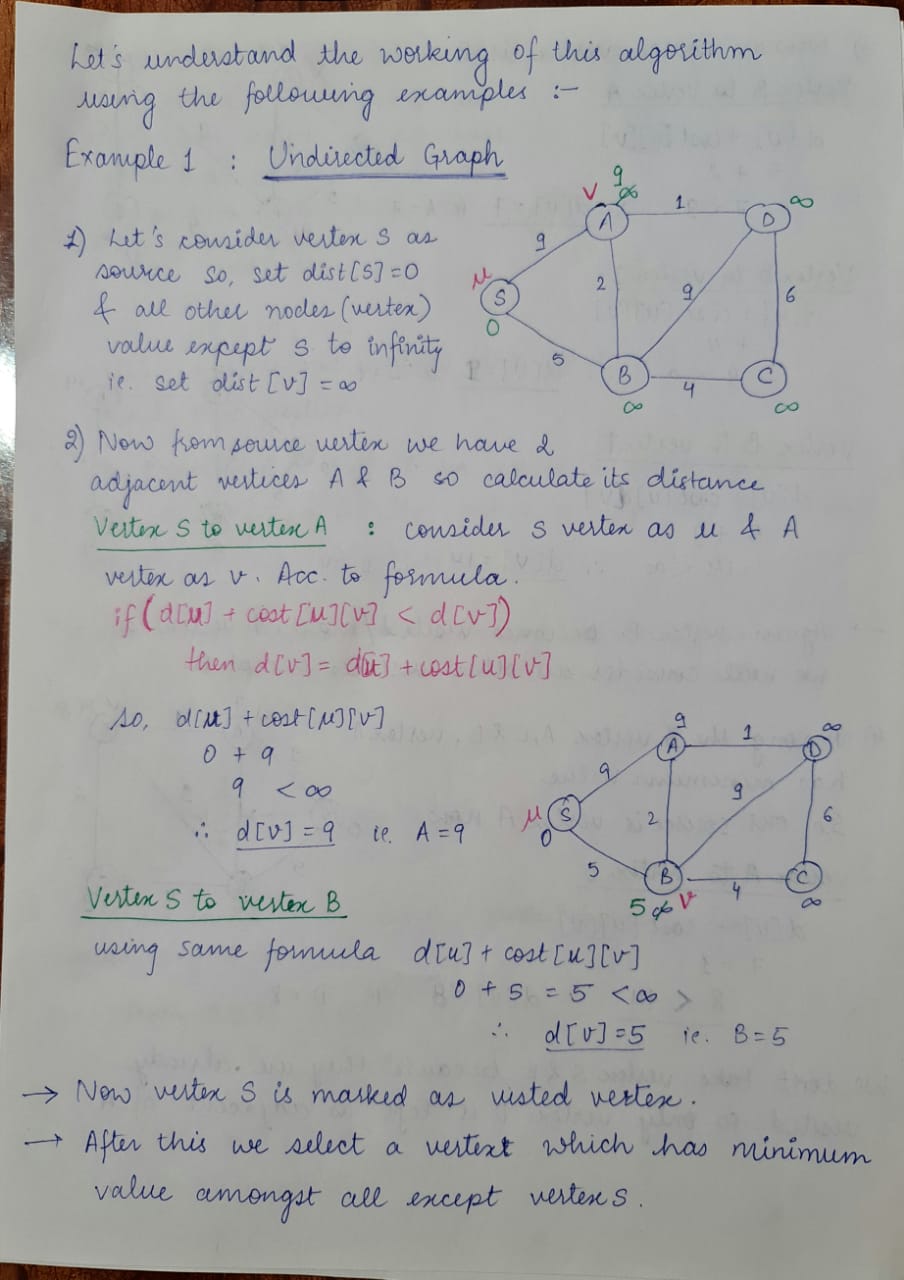 Let's understand the working of this algorithm
using the following examples :-
Example 1 : Undirected Graph
1) Let's consider vertex S as
source so, set dist[S]=0
& all other nodes (vertex)
value except S to infinity
ie. set dist[v] = ∞
9
v ∞
A 1 D ∞
9
u
S 2 9 6
0
5
B 4 C
∞ ∞
2) Now from source vertex we have 2
adjacent vertices A & B so calculate its distance
Vertex S to vertex A : consider S vertex as u & A
vertex as v. Acc. to formula.
if (d[u] + cost[u][v] < d[v])
then d[v] = d[u] + cost[u][v]
So, d[u] + cost[u][v]
0 + 9
9 < ∞
∴ d[v] = 9 ie. A = 9
9 ∞
A 1 D
9
u S 2 9 6
0
5
B 4 C
5 ∞ v ∞
Vertex S to vertex B
using same formula d[u] + cost[u][v]
0 + 5 = 5 < ∞ >
∴ d[v] = 5 ie. B = 5
→ Now vertex S is marked as visted vertex.
→ After this we select a vertext which has minimum
value amongst all except vertex S.